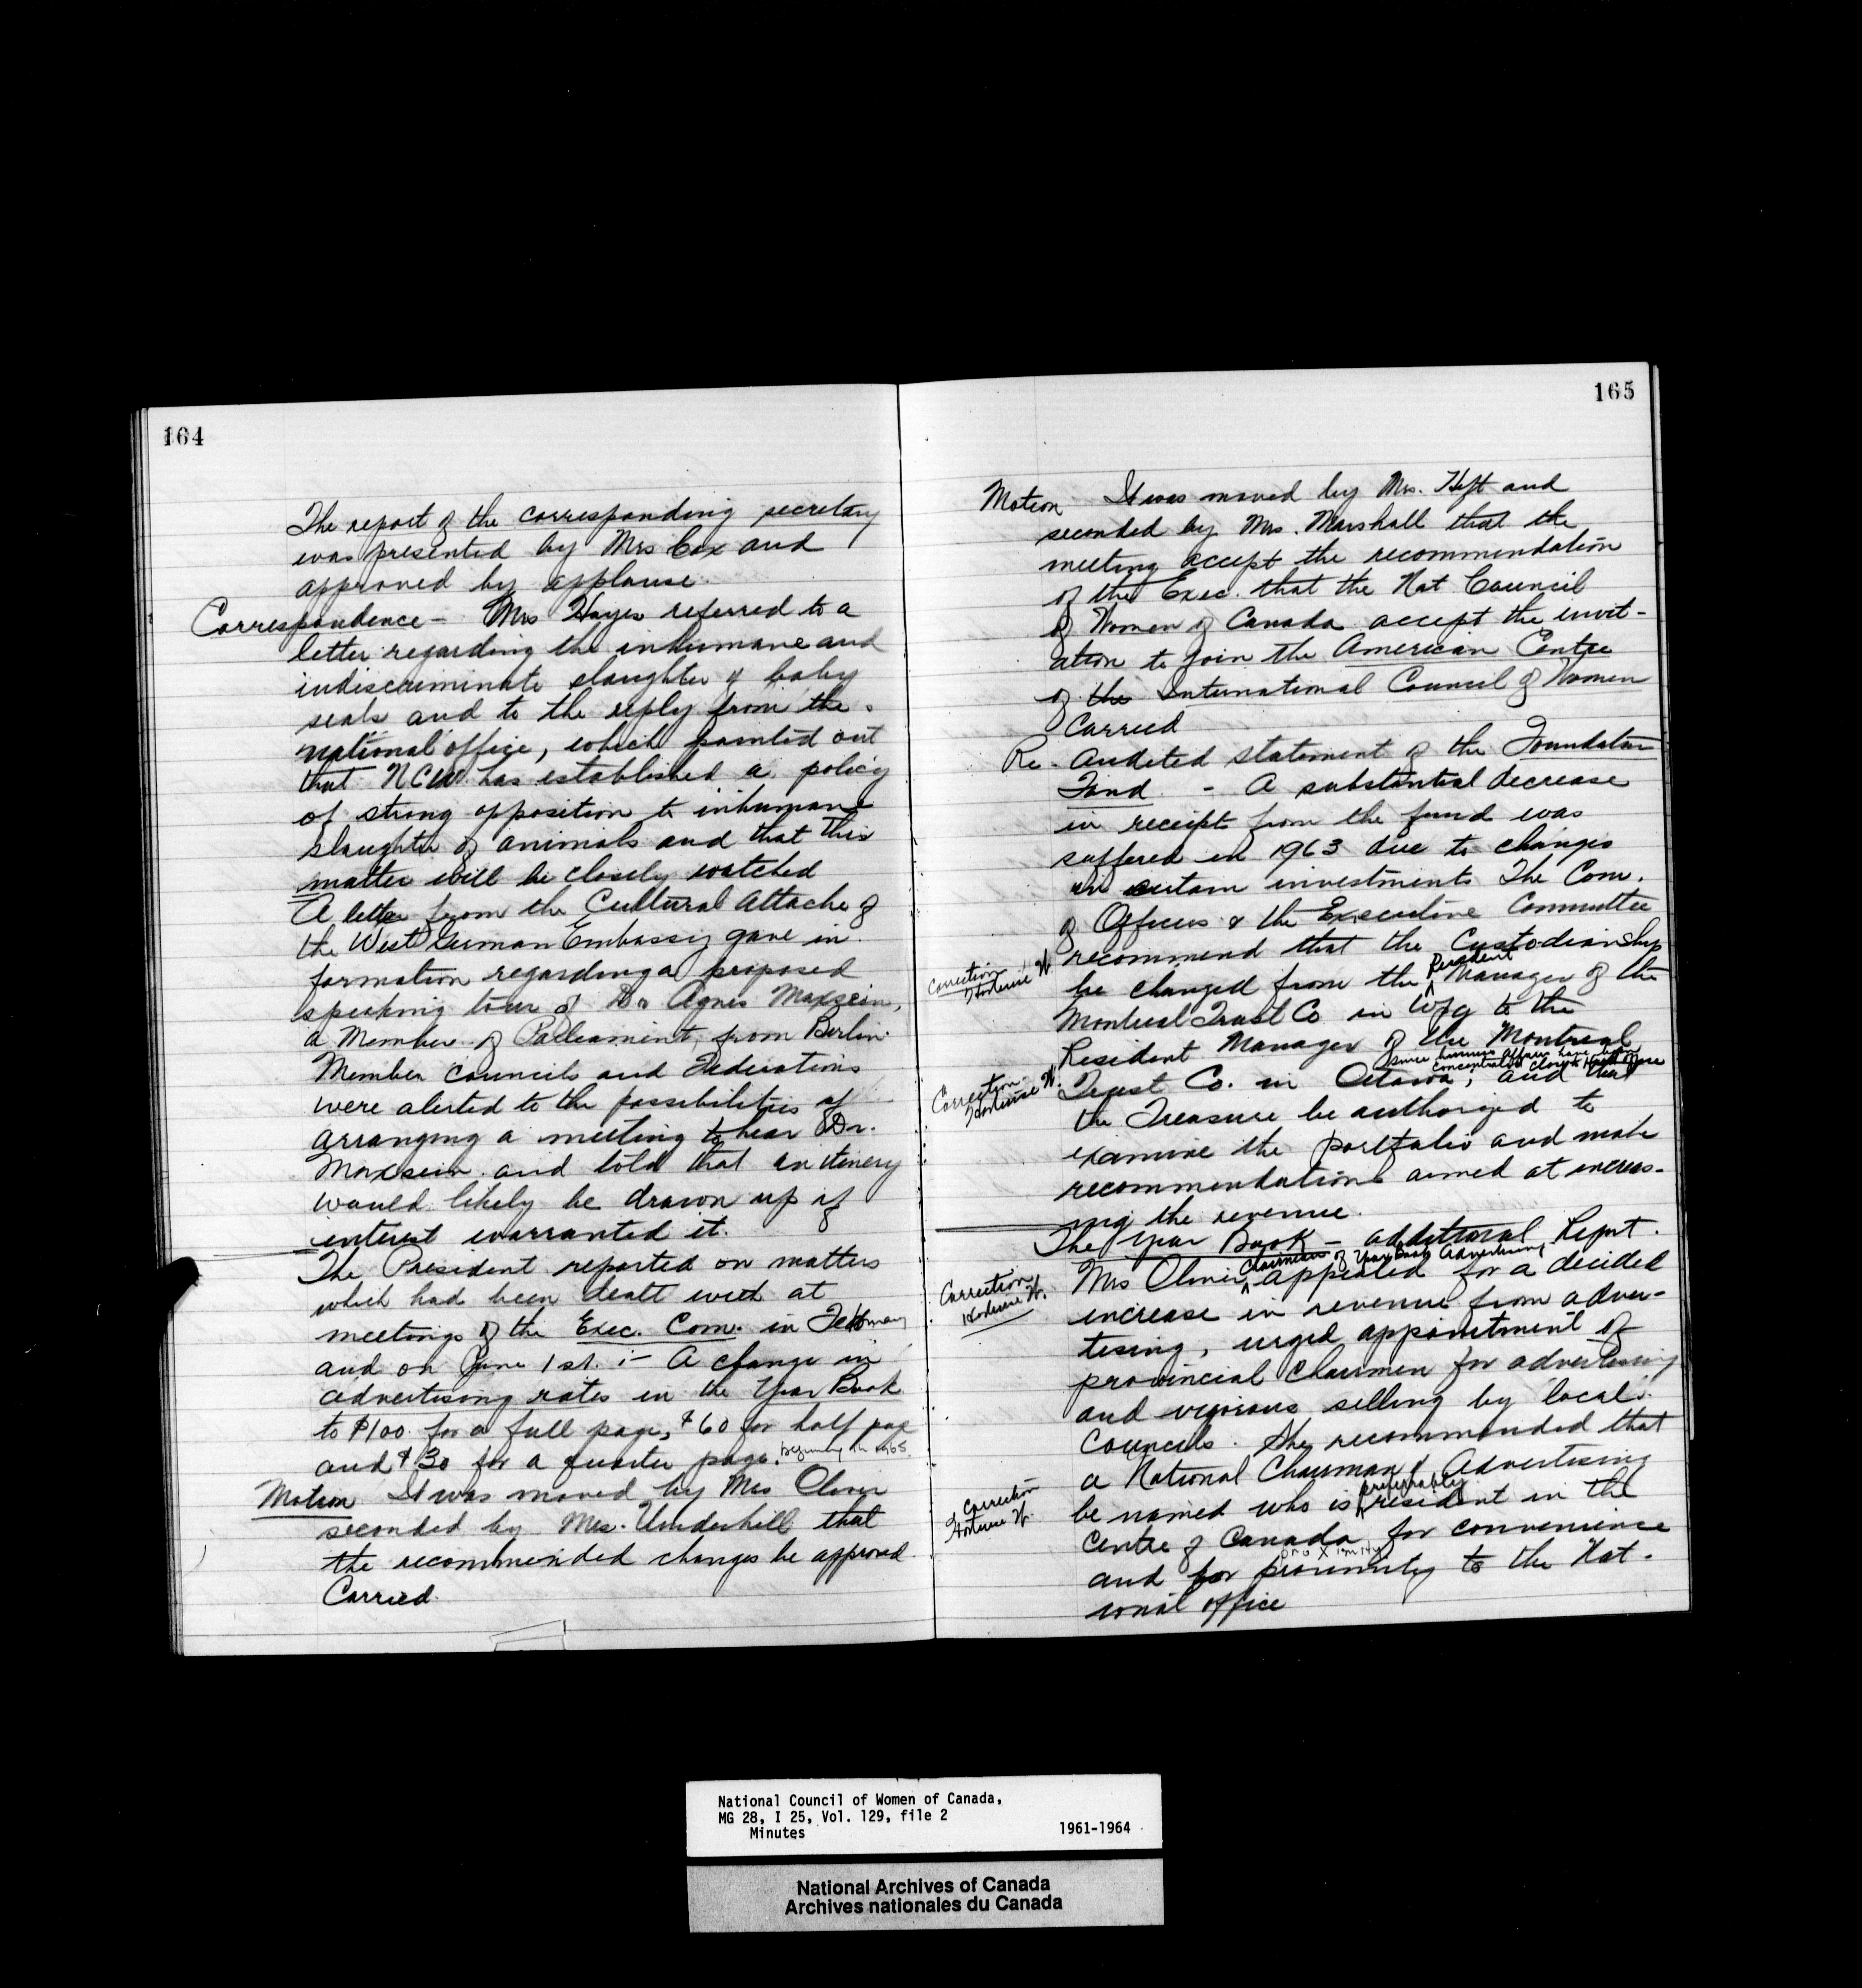 164
The report of the corresponding secretary
was presented by Mrs Cox and
approved by applause.
Correspondence - Mrs Hayes referred to a
letter regarding the inhumane and
indiscriminate slaughter of baby
seals and to the reply from the
national office, which pointed out
that NCW has established a policy
of strong opposition to inhumane
slaughter of animals and that this
matter will be closely watched
A letter from the Cultural Attache of
the West German Embassy gave in-
formation regarding a proposed
speaking tour of Dr Agnes Maxsein,
a Member of Parliament, from Berlin.
Member Councils and Federations
were alerted to the possibilities of
arranging a meeting to hear Dr.
Maxsein and told that an itinery
would likely be drawn up if
interest warranted it.
The President reported on matters
which had been dealt with at
meetings of the Exec. Com. in February
and on June 1st. :- A change in
advertising rates in the Year Book
to $100 for a full page, $60 for half page
and $30 for a quarter page. beginning in 1965.
Motion It was moved by Mrs Oliver
seconded by Mrs. Underhill that
the recommended changes be approved
Carried.
165
Motion It was moved by Mrs. Heft and
seconded by Mrs. Marshall that the
meeting accept the recommendation
of the Exec. that the Nat Council
of Women of Canada accept the invit-
ation to join the American Centre
of the International Council of Women
Carried
Re - Audited statement of the Foundation
Fund - A substantial decrease
in receipt from the fund was
suffered in 1963 due to changes
in certain investments The Com.
of Officers & the Executive Committee
recommend that the Custodianship
Correction Hortense W.
be changed from the Resident Manager of the
Montreal Trust Co in Wpg to the
Resident Manager of the Montreal
since business affairs have been
concentrated closer to Head Office
Correction Hortense W.
Trust Co. in Ottawa, and that
the Treasure be authorized to
examine the portfolio and make
recommendations aimed at increas-
ing the revenue.
The Year Book - additional Report.
Chairman of Year Book Advertising
Correction Hortense W.
Mrs Oliver, appealed for a decided
increase in revenue from adver-
tising, urged appointment of
provincial chairmen for advertising
and vigorous selling by local
Councils. She recommended that
a National Chairman of Advertising
Correction Hortense W.
be named who is preferrably resident in the
Centre of Canada for convenience
proximity
and for proximity to the Nat-
ional office
National Council of Women of Canada,
MG 28, I 25, Vol. 129, file 2
Minutes 1961-1964
National Archives of Canada
Archives nationales du Canada